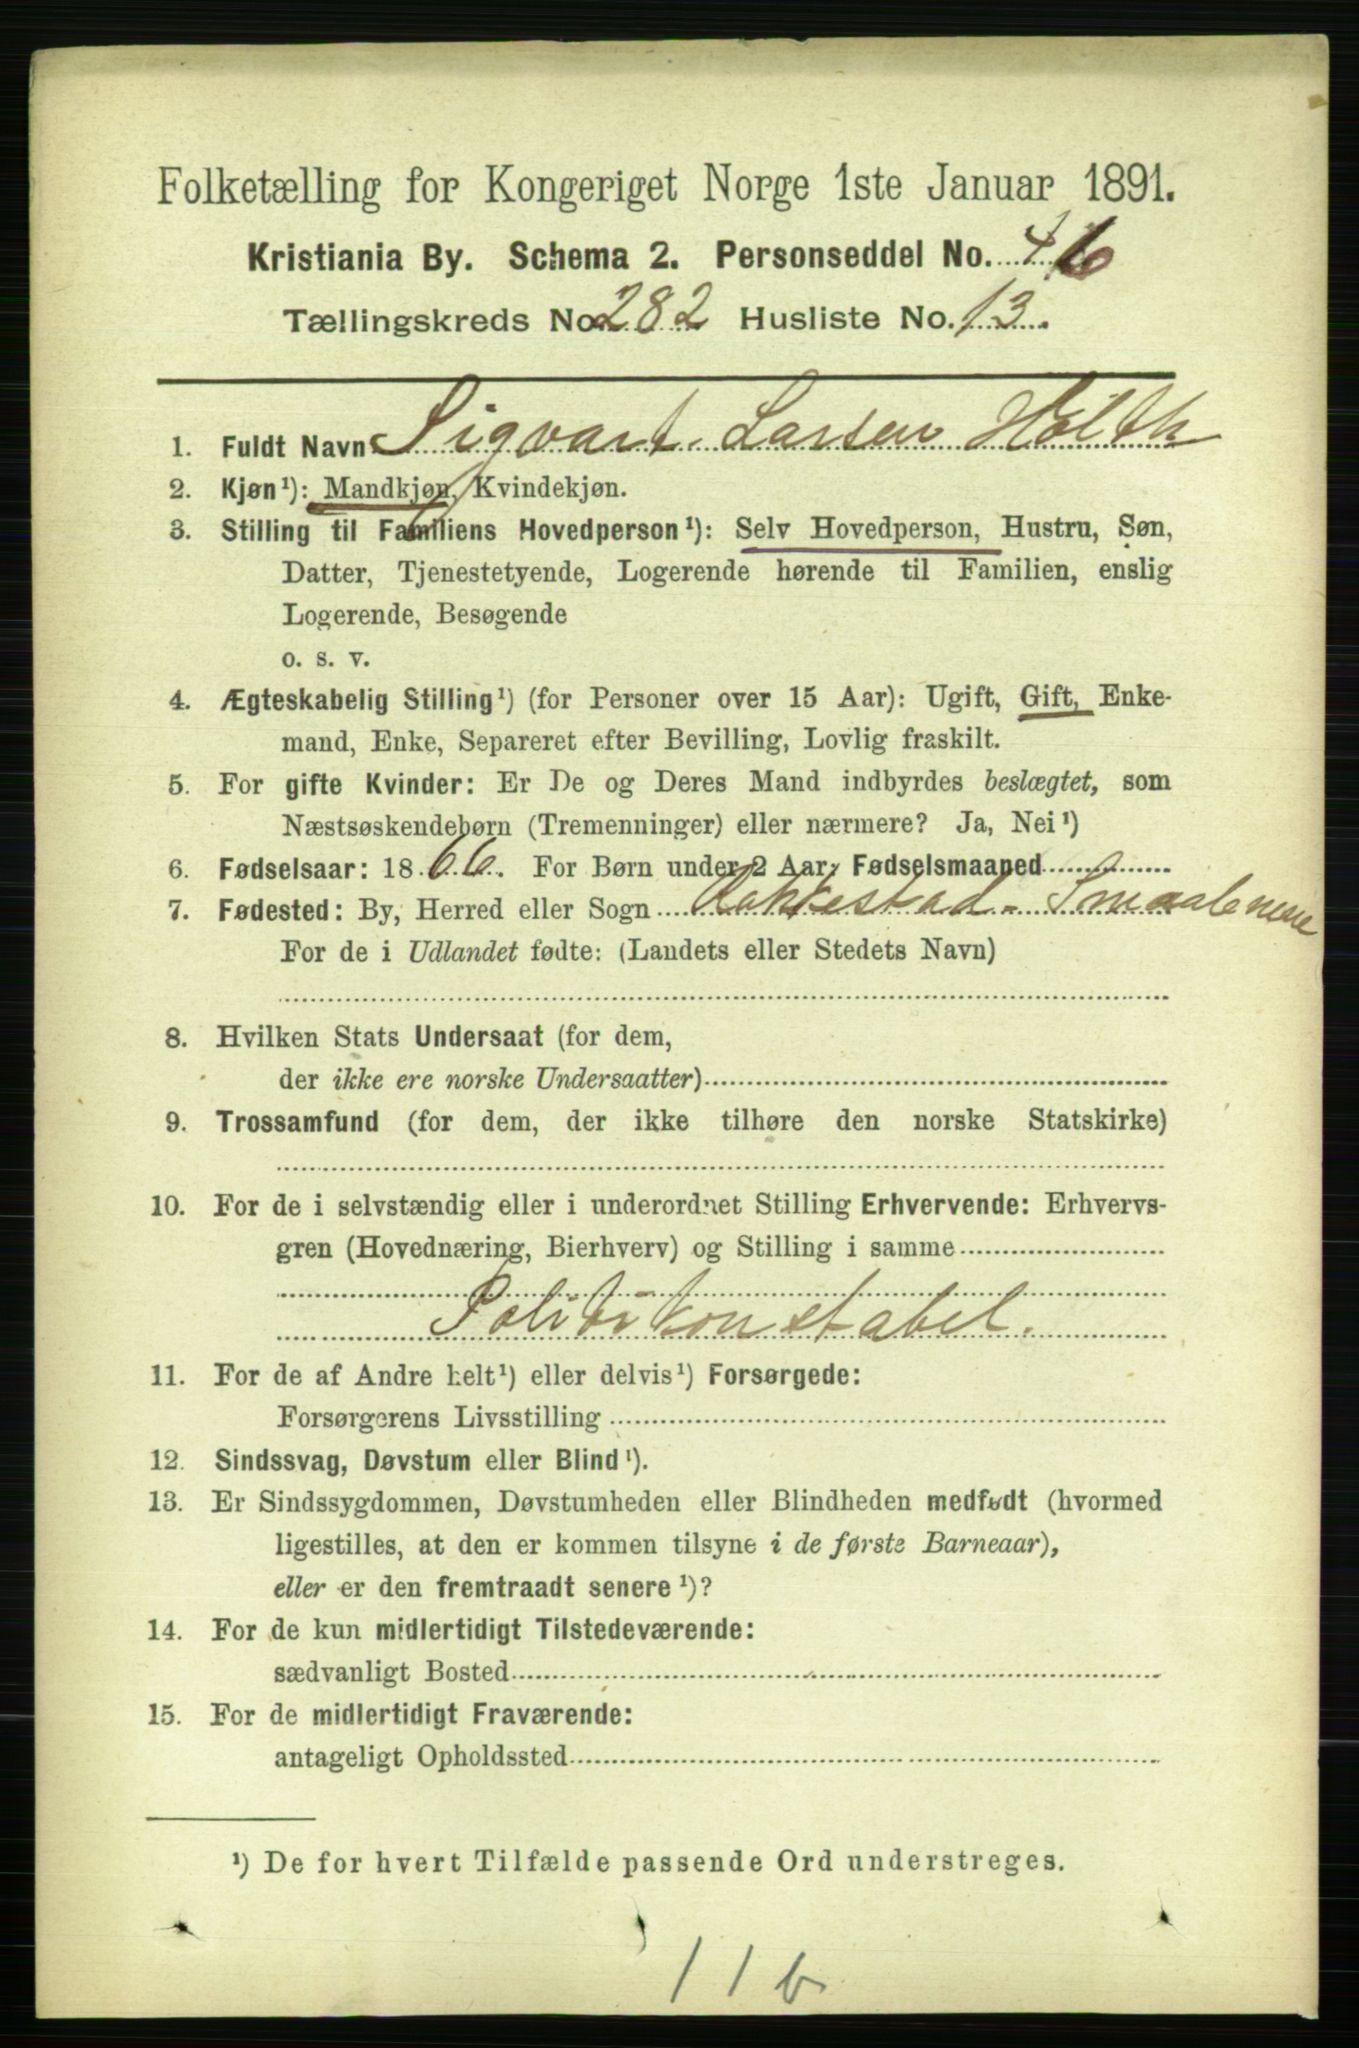 Folketælling for Kongeriget Norge 1ste Januar 1891.
Kristiania By. Schema 2. Personseddel No. 46
Tællingskreds No. 282 Husliste No. 13.
1. Fuldt Navn Sigvart Larsen Holth
2. Kjøn¹): Mandkjøn, Kvindekjøn.
3. Stilling til Familiens Hovedperson¹): Selv Hovedperson, Hustru, Søn,
Datter, Tjenestetyende, Logerende hørende til Familien, enslig
Logerende, Besøgende
o. s. v.
4. Ægteskabelig Stilling¹) (for Personer over 15 Aar): Ugift, Gift, Enke-
mand, Enke, Separeret efter Bevilling, Lovlig fraskilt.
5. For gifte Kvinder: Er De og Deres Mand indbyrdes beslægtet, som
Næstsøskendebørn (Tremenninger) eller nærmere? Ja, Nei¹)
6. Fødselsaar: 1866. For Børn under 2 Aar: Fødselsmaaned
7. Fødested: By, Herred eller Sogn Rakkestad - Smaalenene
For de i Udlandet fødte: (Landets eller Stedets Navn)
8. Hvilken Stats Undersaat (for dem,
der ikke ere norske Undersaatter)
9. Trossamfund (for dem, der ikke tilhøre den norske Statskirke)
10. For de i selvstændig eller i underordnet Stilling Erhvervende: Erhvervs-
gren (Hovednæring, Bierhverv) og Stilling i samme
Politikonstabel.
11. For de af Andre helt¹) eller delvis¹) Forsørgede:
Forsørgerens Livsstilling
12. Sindssvag, Døvstum eller Blind¹).
13. Er Sindssygdommen, Døvstumheden eller Blindheden medfødt (hvormed
ligestilles, at den er kommen tilsyne i de første Barneaar),
eller er den fremtraadt senere¹)?
14. For de kun midlertidigt Tilstedeværende:
sædvanligt Bosted
15. For de midlertidigt Fraværende:
antageligt Opholdssted
¹) De for hvert Tilfælde passende Ord understreges.
11b